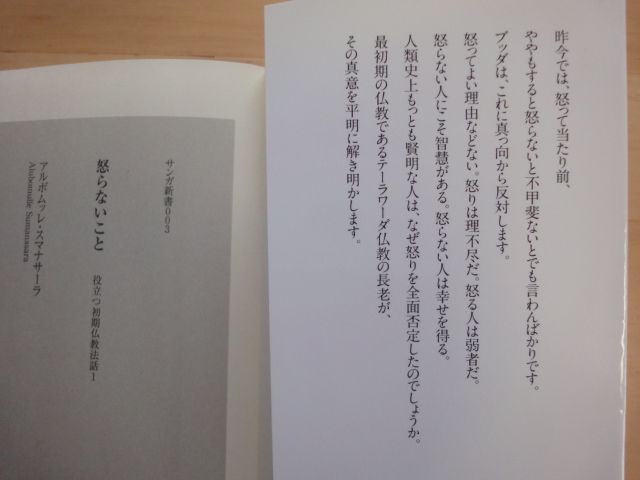 昨今では、怒って当たり前、
ややもすると怒らないと不甲斐ないとでも言わんばかりです。
ブッダは、これに真っ向から反対します。
怒ってよい理由などない。怒りは理不尽だ。怒る人は弱者だ。
怒らない人にこそ智慧がある。怒らない人は幸せを得る。
人類史上もっとも賢明な人は、なぜ怒りを全面否定したのでしょうか。
最初期の仏教であるテーラワーダ仏教の長老が、
その真意を平明に解き明かします。
サンガ新書003
怒らないこと 役立つ初期仏教法話1
アルボムッレ・スマナサーラ
Alubomulle Sumanasara